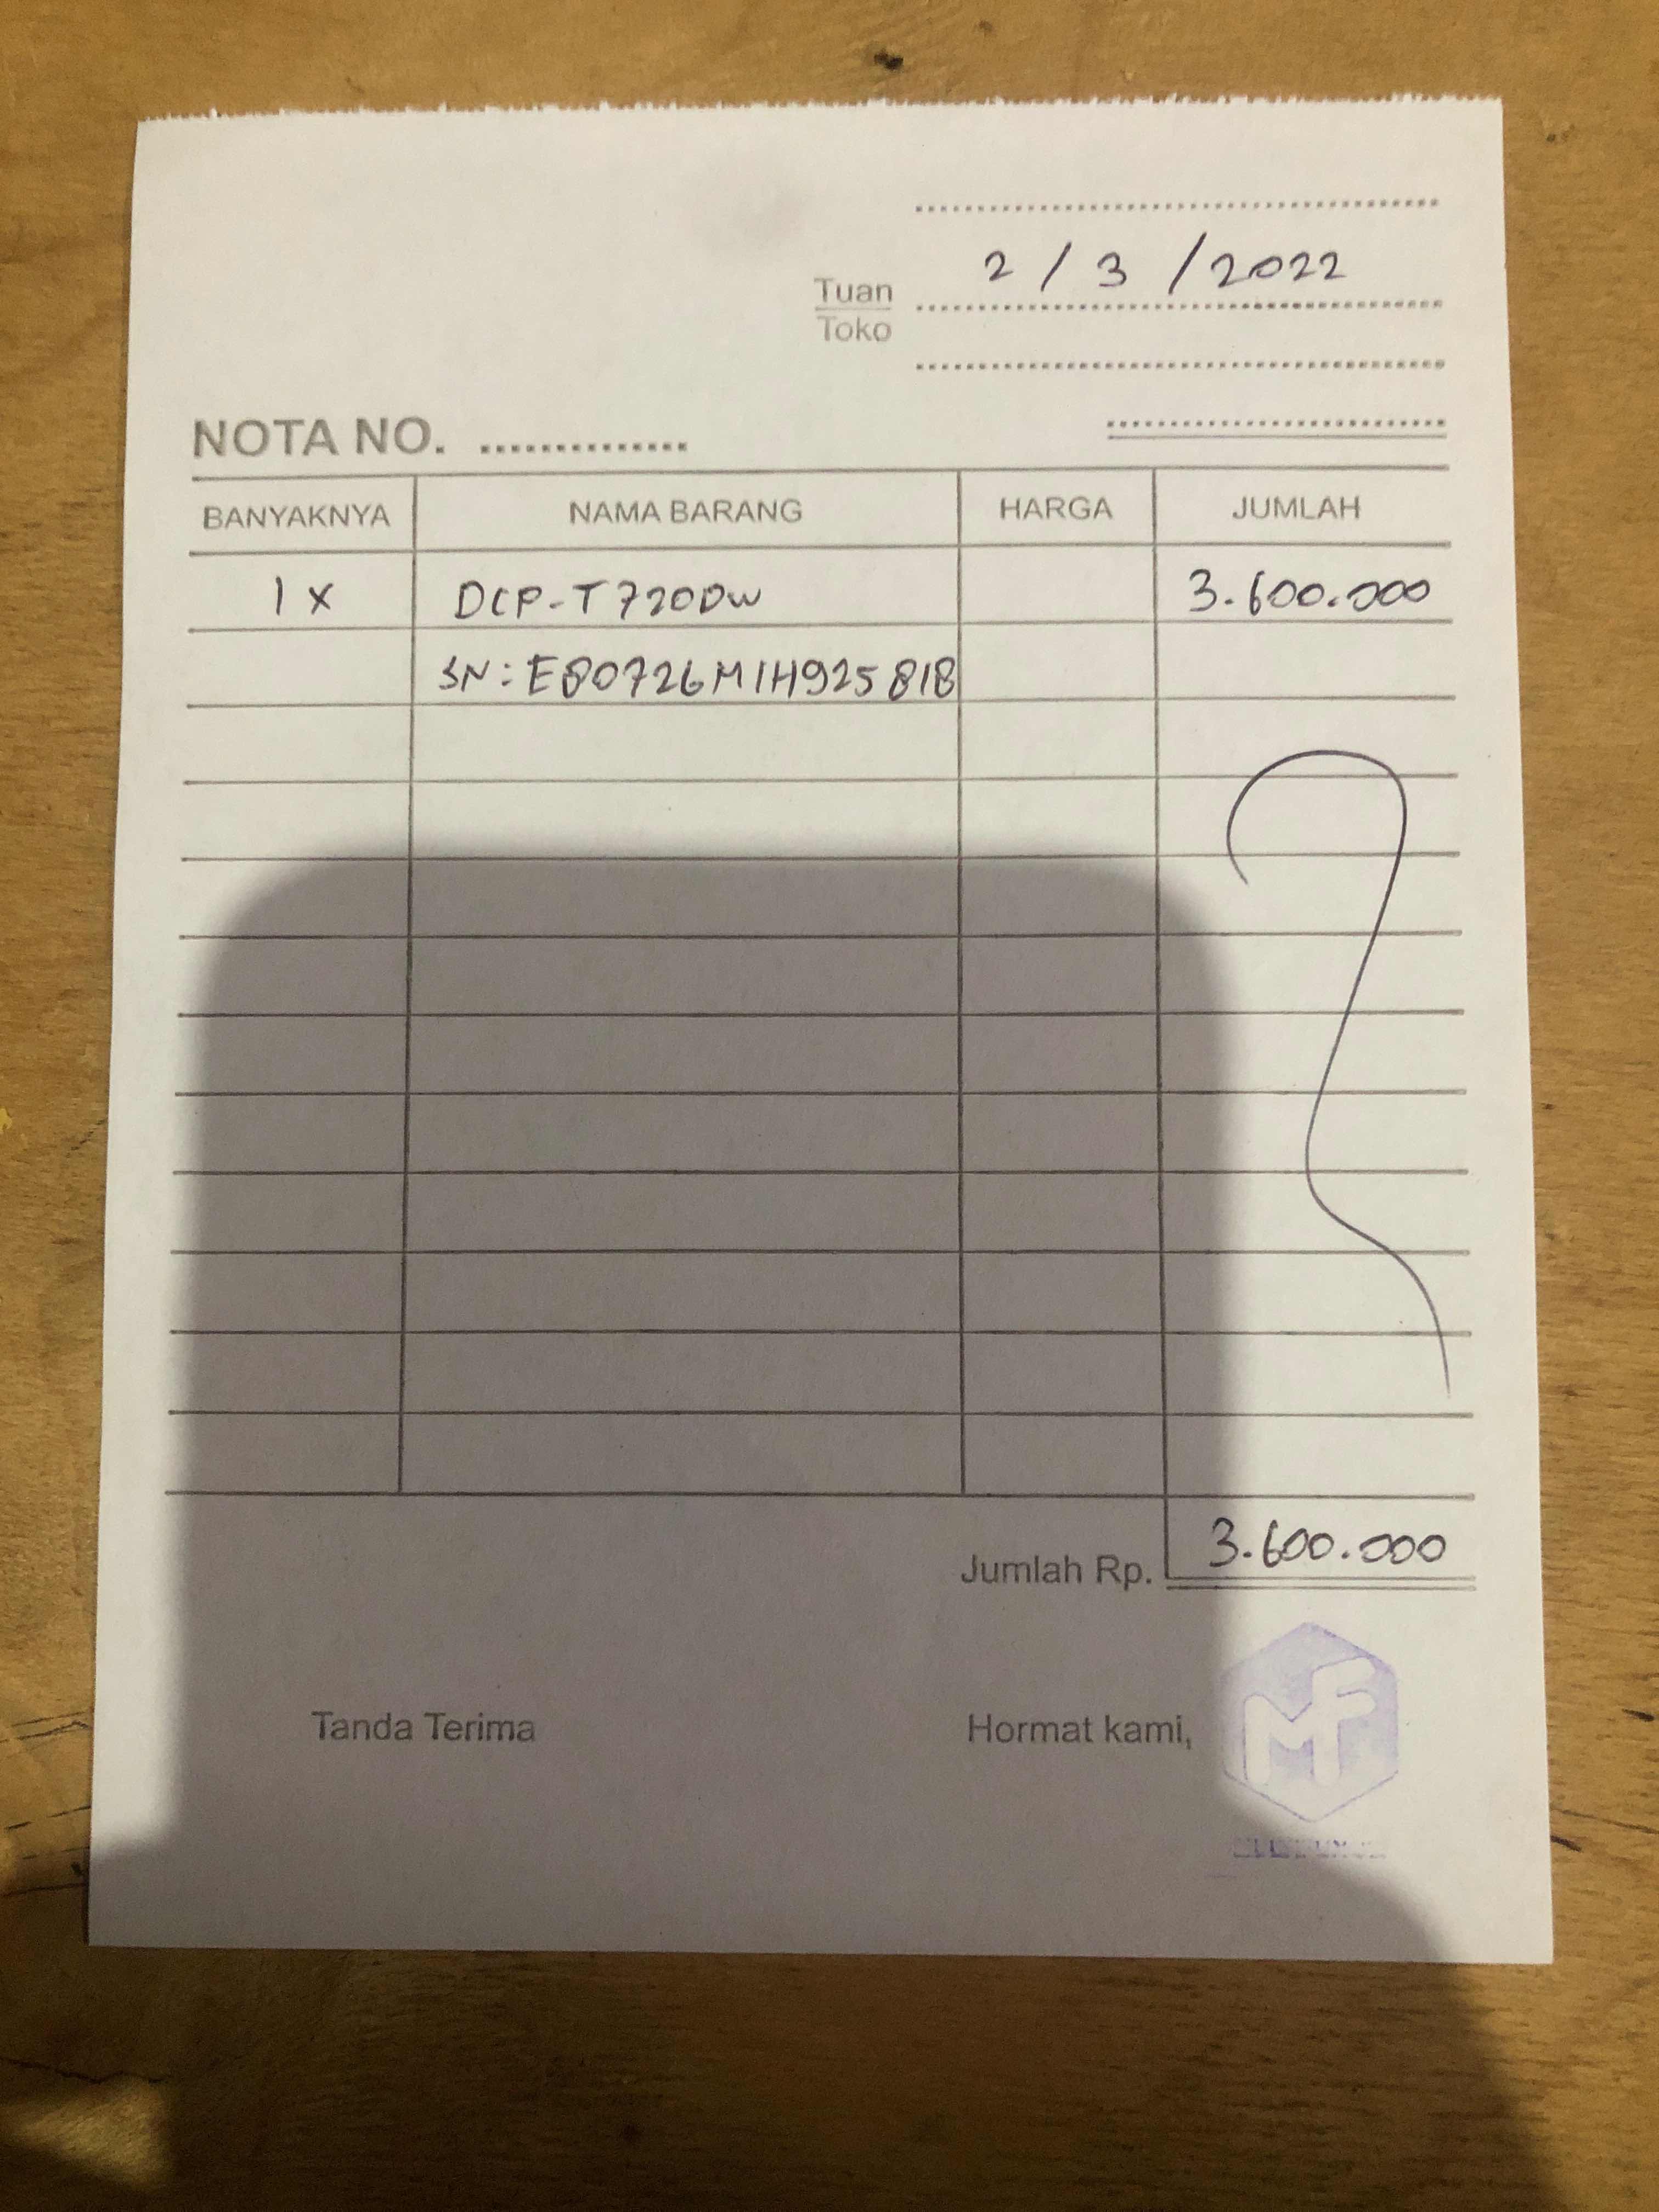 2 / 3 / 2022
Tuan
Toko
NOTA NO.
BANYAKNYA NAMA BARANG HARGA JUMLAH
1 x DCP-T720DW 3.600.000
SN: E80726M1H925818
Jumlah Rp. 3.600.000
Tanda Terima Hormat kami,
MF